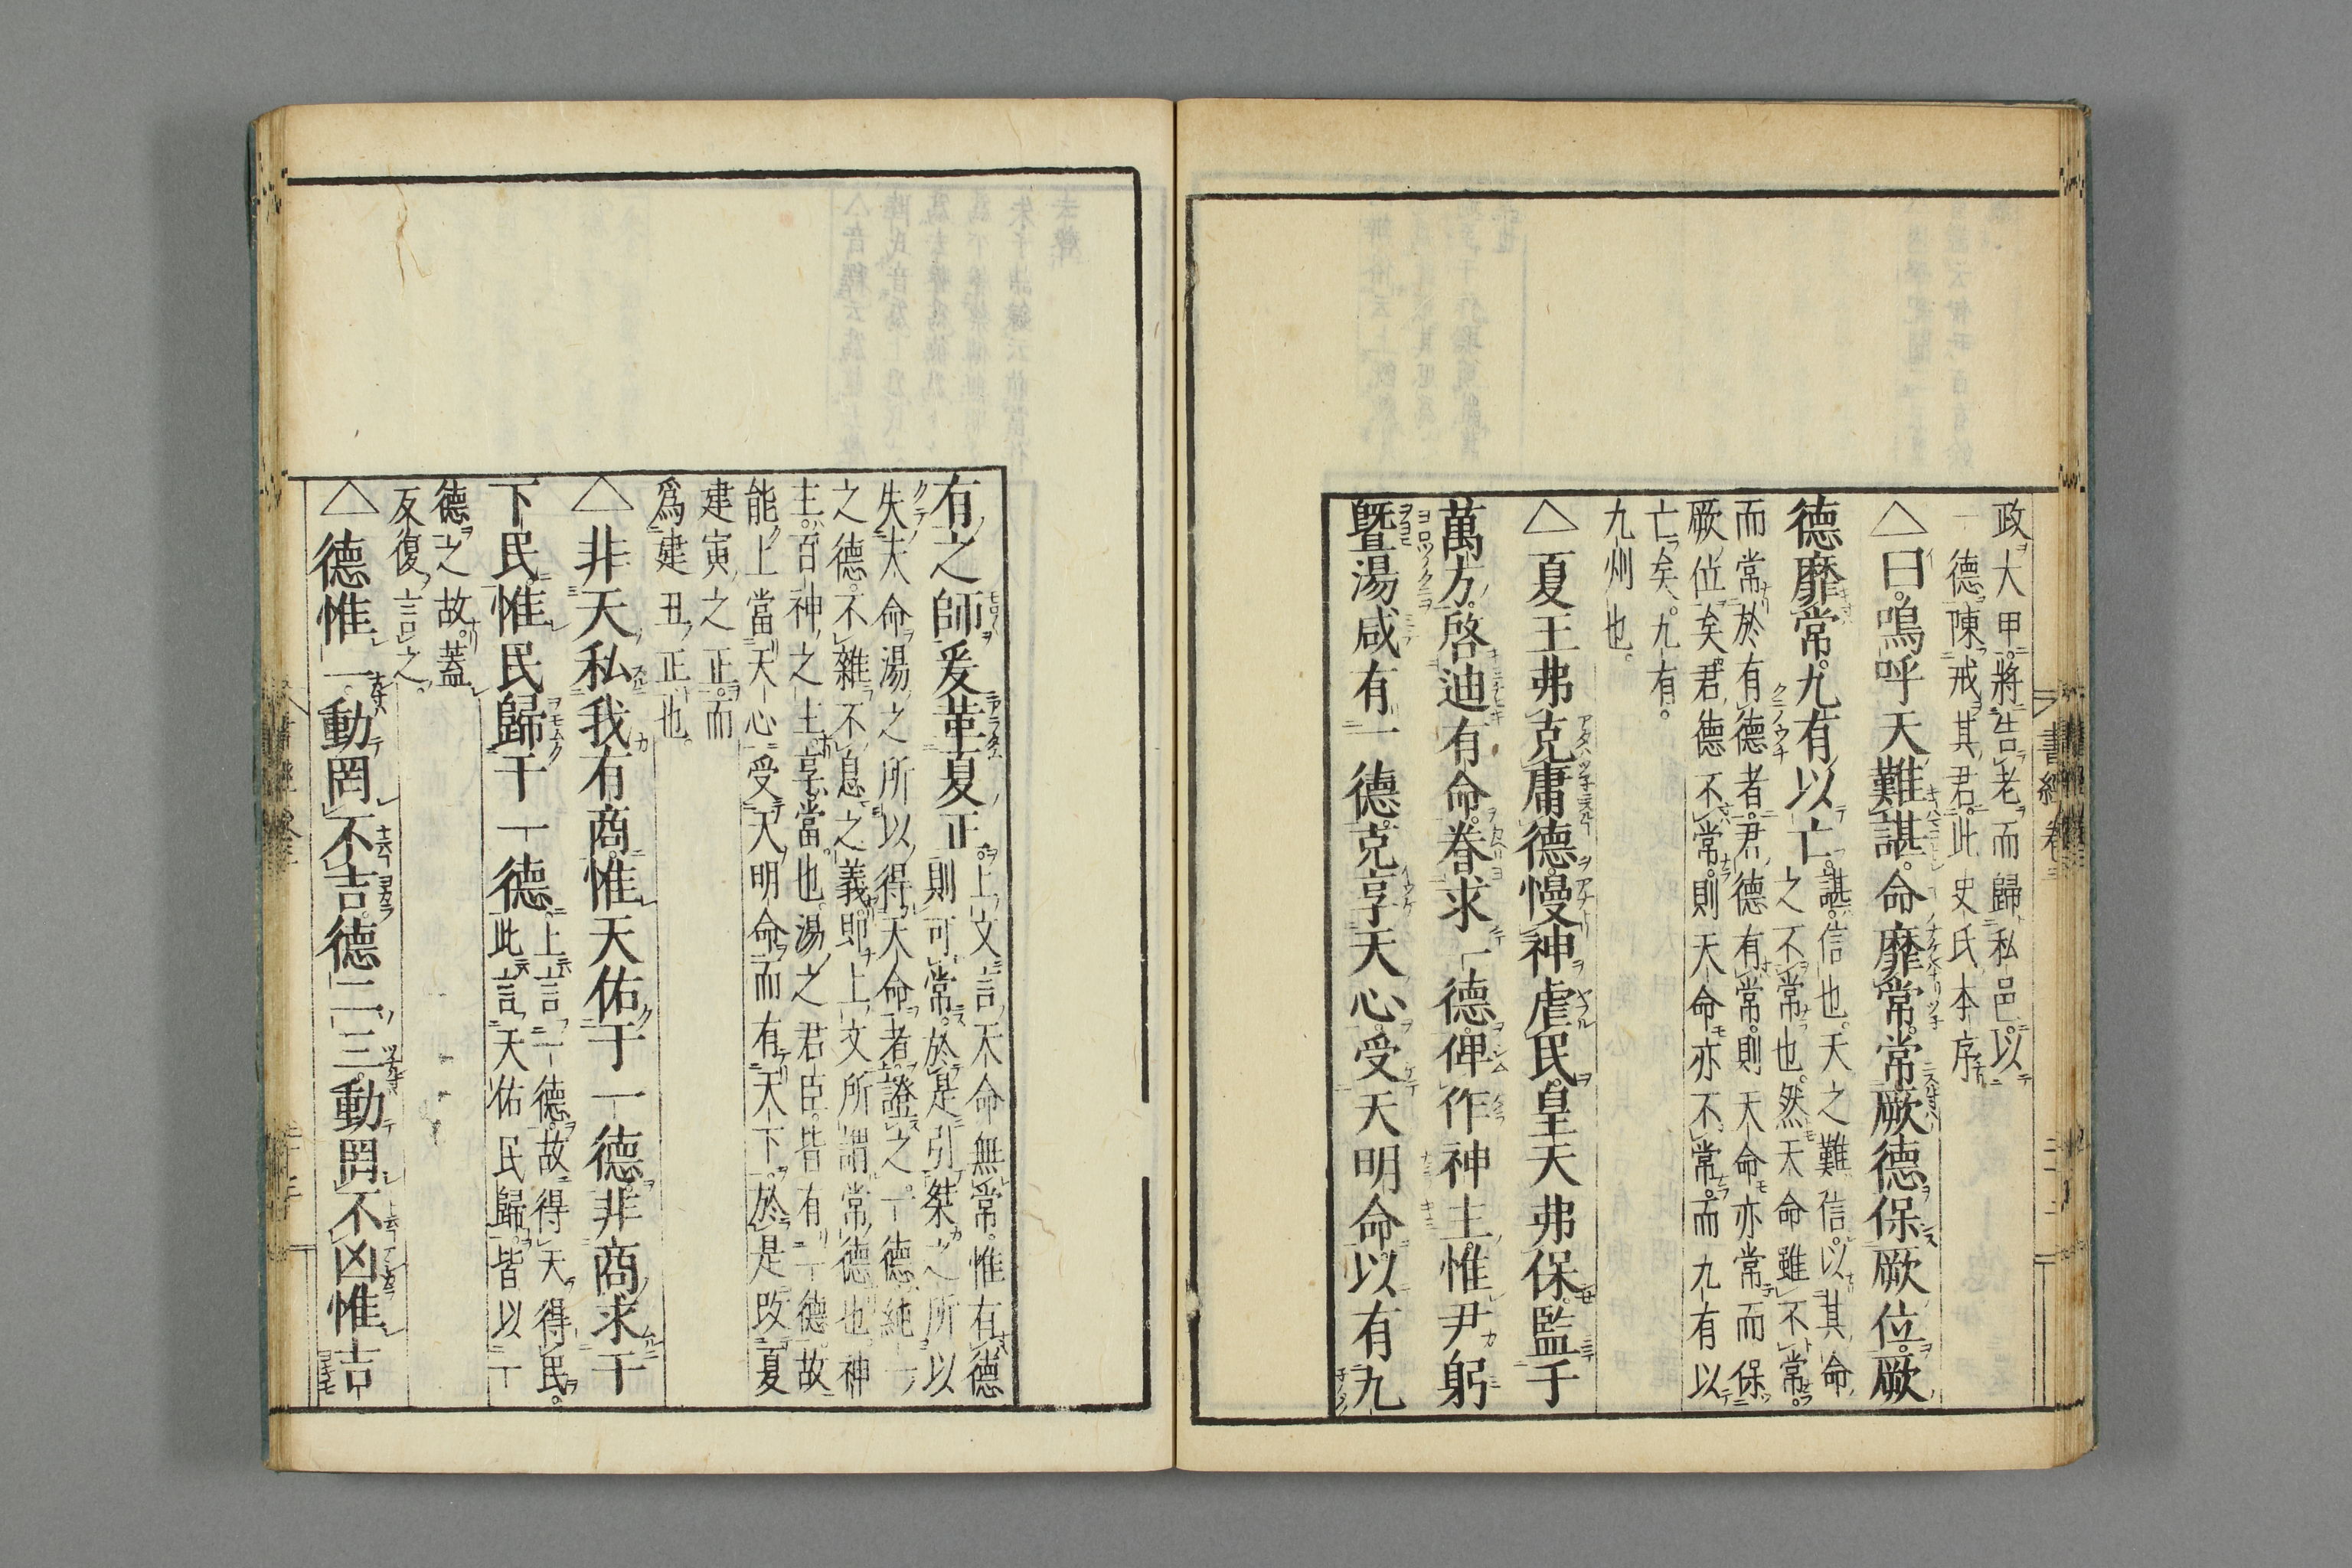 政大甲將告老而歸私邑以
一德陳戒其君此史氏本序
△曰嗚呼天難諶命靡常常厥德保厥位厥
德靡常九有以亡
諶信也天之難信以其命
之不常也然天命雖不常
而常於有德者君德有常則天命亦常而保
厥位矣君德不常則天命亦不常而九有以
亡矣九有
九州也
△夏王弗克庸德慢神虐民皇天弗保監于
萬方啓迪有命眷求一德俾作神主惟尹躬
曁湯咸有一德克享天心受天明命以有九
書經卷三
有之師爰革夏正
上文言天命無常惟有德
則可常於是引桀之所以
失天命湯之所以得天命者證之一德純一
之德不雜不息之義即上文所謂常德也神
主百神之主享當也湯之君臣皆有一德故
能上當天心受天明命而有天下於是改夏
建寅之正而
爲建丑正也
△非天私我有商惟天佑于一德非商求于
下民惟民歸于一德
上言一德故得天得民
此言天佑民歸皆以一
德之故蓋
反復言之
△德惟一動罔不吉德二三動罔不凶惟吉